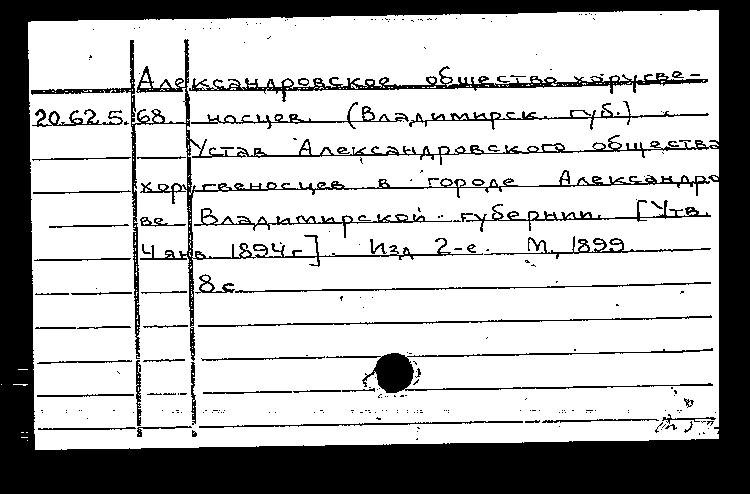 Александровское общество хоругве-
20.62.5.68. носцев. (Владимирск. губ.)
Устав Александровского общества
хоругвеносцев в городе Александро
ве Владимирской губернии. [Утв.
4 янв. 1894 г.]. Изд 2-е. М., 1899.
8 с.